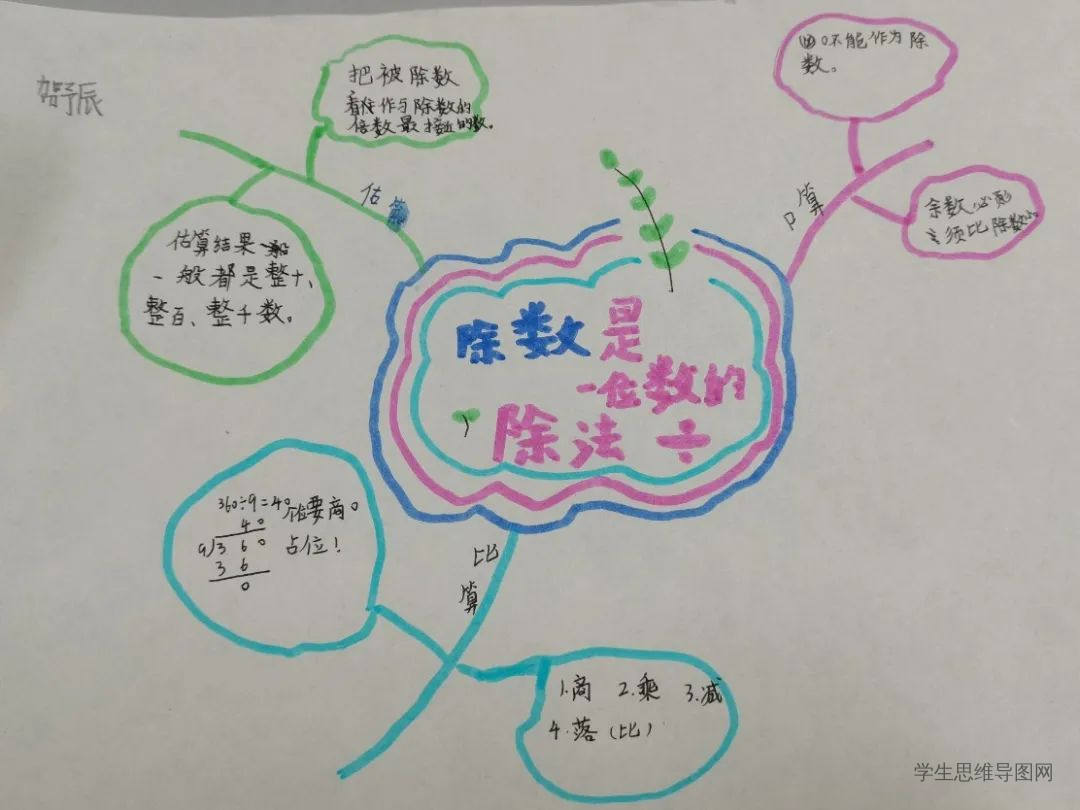 贺予辰
把被除数
看作与除数的
倍数最接近的数。
估算
估算结果一般
一般都是整十、
整百、整千数。
0不能作为除
数。
口算
余数必
须比除数小。
除数是
一位数的
除法 ÷
比算
360÷9=40
40
9)360
36
0
个位要商0
占位!
1.商 2.乘 3.减
4.落(比)
学生思维导图网